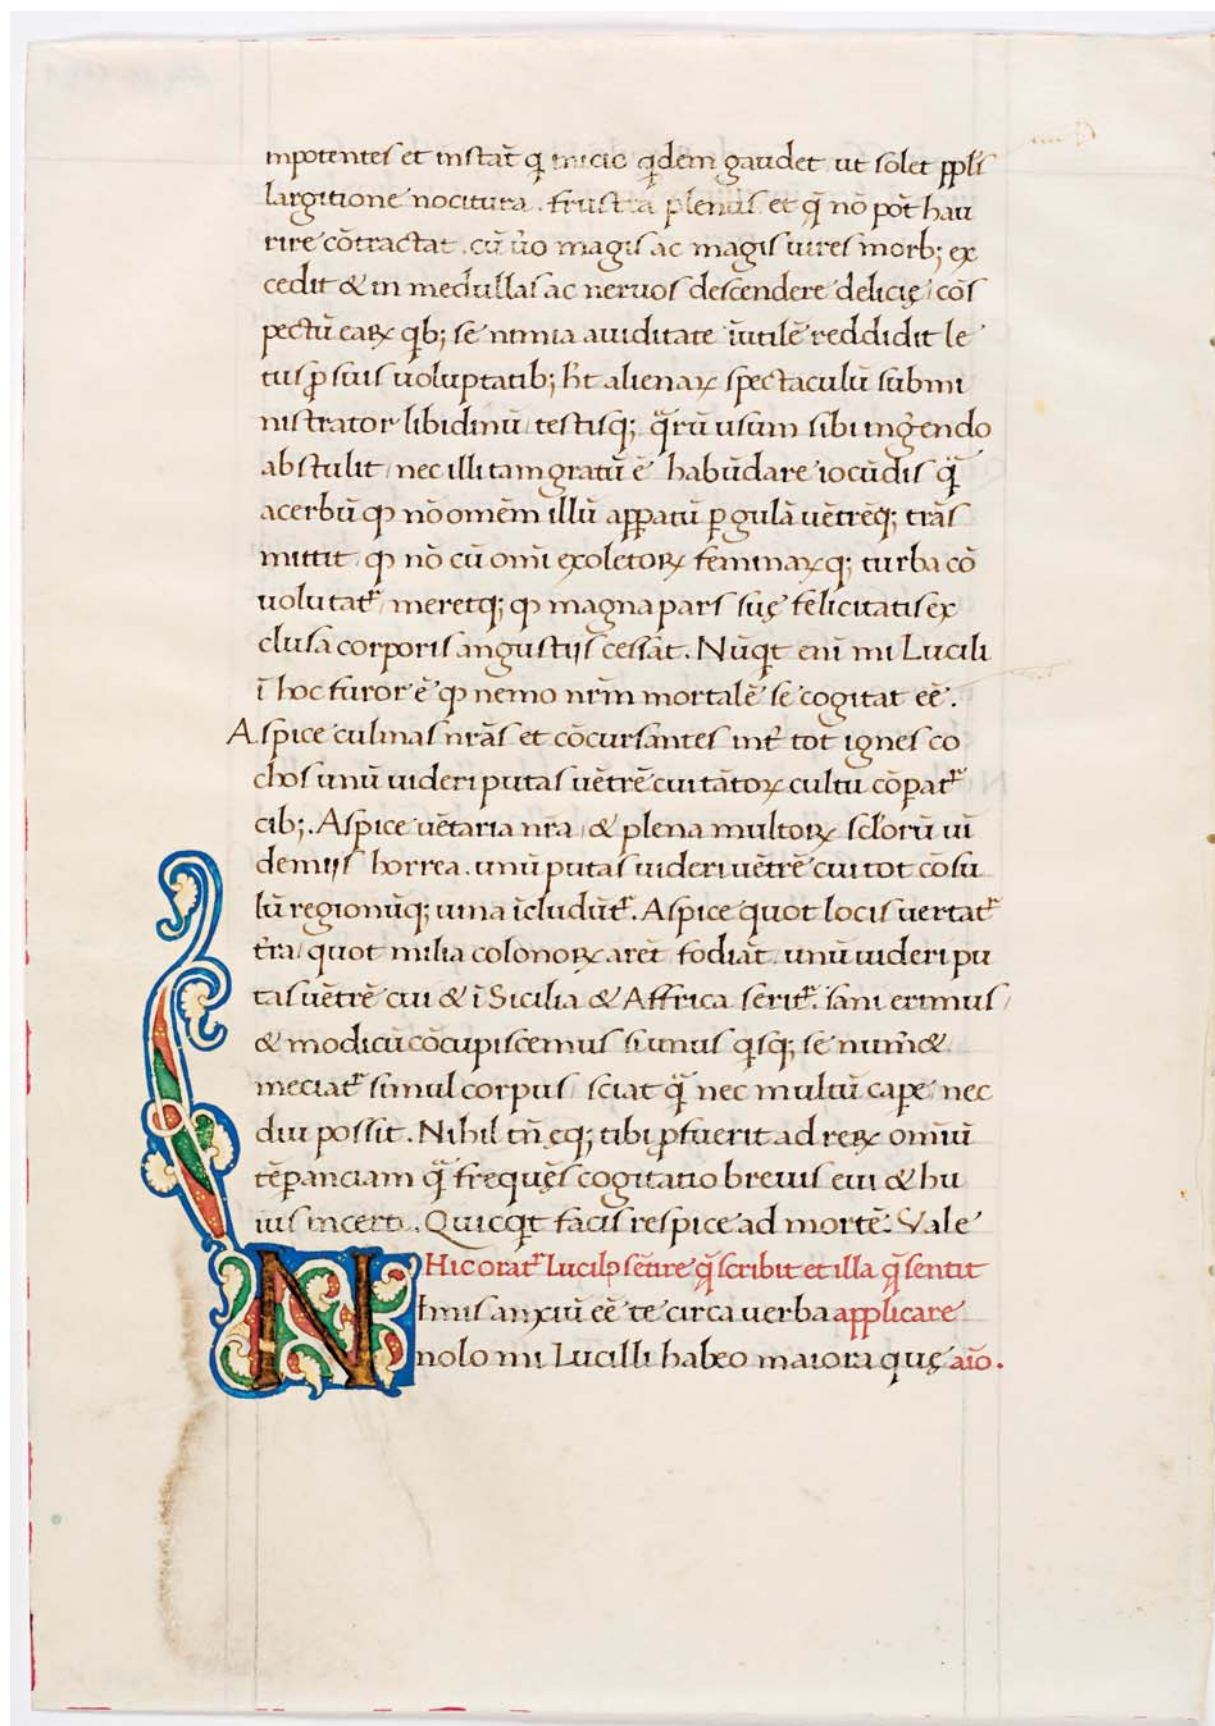 inpotentes et instat̄ q̨ micic q̨dem gaudet ut solet pplīs
largitione nocitura . frustra plenus et q̄ nō pōt hau
rire cōtractat . cū ūo magis ac magis uires morb; ex
cedit & in medullas ac neruos descendere delicię / cōs
pectū eaꝝ qb; se nimia auiditate īutilē reddidit le
tus ꝓ suis uoluptatib; h̄t alienaꝝ spectaculū submi
nistrator libidinū / testisq; q̄rū usum sibi ingēndo
abstulit / nec illi tam gratū ē habūdare iocūdis q̄
acerbū ꝙ nō omēm illū apparatū ꝑ gulā uētrēq; trās
mittit ꝙ nō cū om̄i exoletoꝝ feminaꝝq; turba cō
uolutat᷑ meretq; ꝙ magna pars suę felicitatis ex
clusa corporis angustijs cessāt . Nūqt eni mi Lucili
ī hoc furor ē ꝙ nemo nr̄m mortalē se cogitat eē .
Aspice culinas nrās et cōcursantes int̄ tot ignes co
chos unū uideri putas uētrē cui tātoꝝ cultu cōpat᷑
cib; . Aspice uētaria nrā / & plena multoꝝ sclōrū ui
demijs horrea . unū putas uideri uētrē cui tot cōsu
lū regionūq; uina īcludūt᷑ . Aspice quot locis uertat᷑
t̄ra / quot milia colonoꝝ arēt fodiāt . unū uideri pu
tas uētrē cui & ī Sicilia & Affrica serit᷑ . sani erimus /
& modicū cōcupiscemus si unus qsq; se num̄&
meciat᷑ simul corpus / sciat q̄ nec multū capē nec
diu possit . Nihil tn̄ ęq; tibi ꝓfuerit ad reꝝ omiū
tēpanciam q̄ frequēs cogitatio breuis eui & hu
ius incerti . Quicqt facis respice ad mortē . Vale
Hic orat᷑ Lucilo sētire q̄ scribit et illa q̄ sentit
Nimis anxiū eē te circa uerba applicare
nolo mi Lucilli habeo maiora quę aīo .